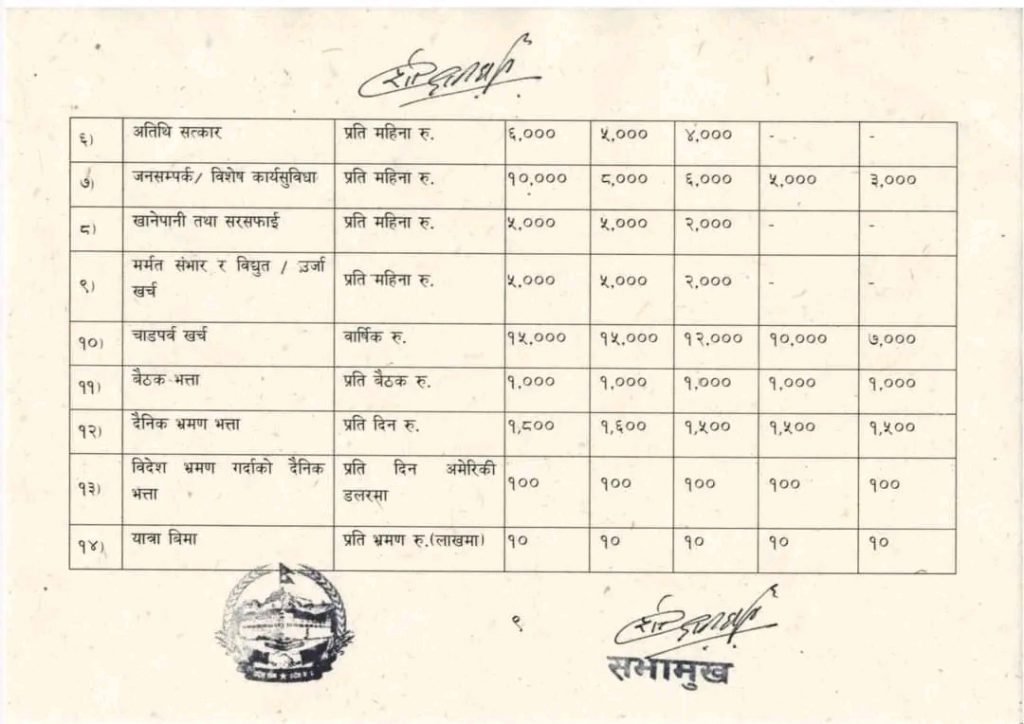 ६) अतिथि सत्कार प्रति महिना रु. ६,००० ५,००० ४,००० - -
७) जनसम्पर्क/ विशेष कार्यसुविधा प्रति महिना रु. १०,००० ८,००० ६,००० ५,००० ३,०००
८) खानेपानी तथा सरसफाई प्रति महिना रु. ५,००० ५,००० २,००० - -
९) मर्मत संभार र विद्युत / उर्जा
खर्च प्रति महिना रु. ५,००० ५,००० २,००० - -
१०) चाडपर्व खर्च वार्षिक रु. १५,००० १५,००० १२,००० १०,००० ७,०००
११) बैठक भत्ता प्रति बैठक रु. १,००० १,००० १,००० १,००० १,०००
१२) दैनिक भ्रमण भत्ता प्रति दिन रु. १,८०० १,६०० १,५०० १,५०० १,५००
१३) विदेश भ्रमण गर्दाको दैनिक
भत्ता प्रति दिन अमेरिकी
डलरमा १०० १०० १०० १०० १००
१४) यात्रा बिमा प्रति भ्रमण रु.(लाखमा) १० १० १० १० १०
९
सभामुख